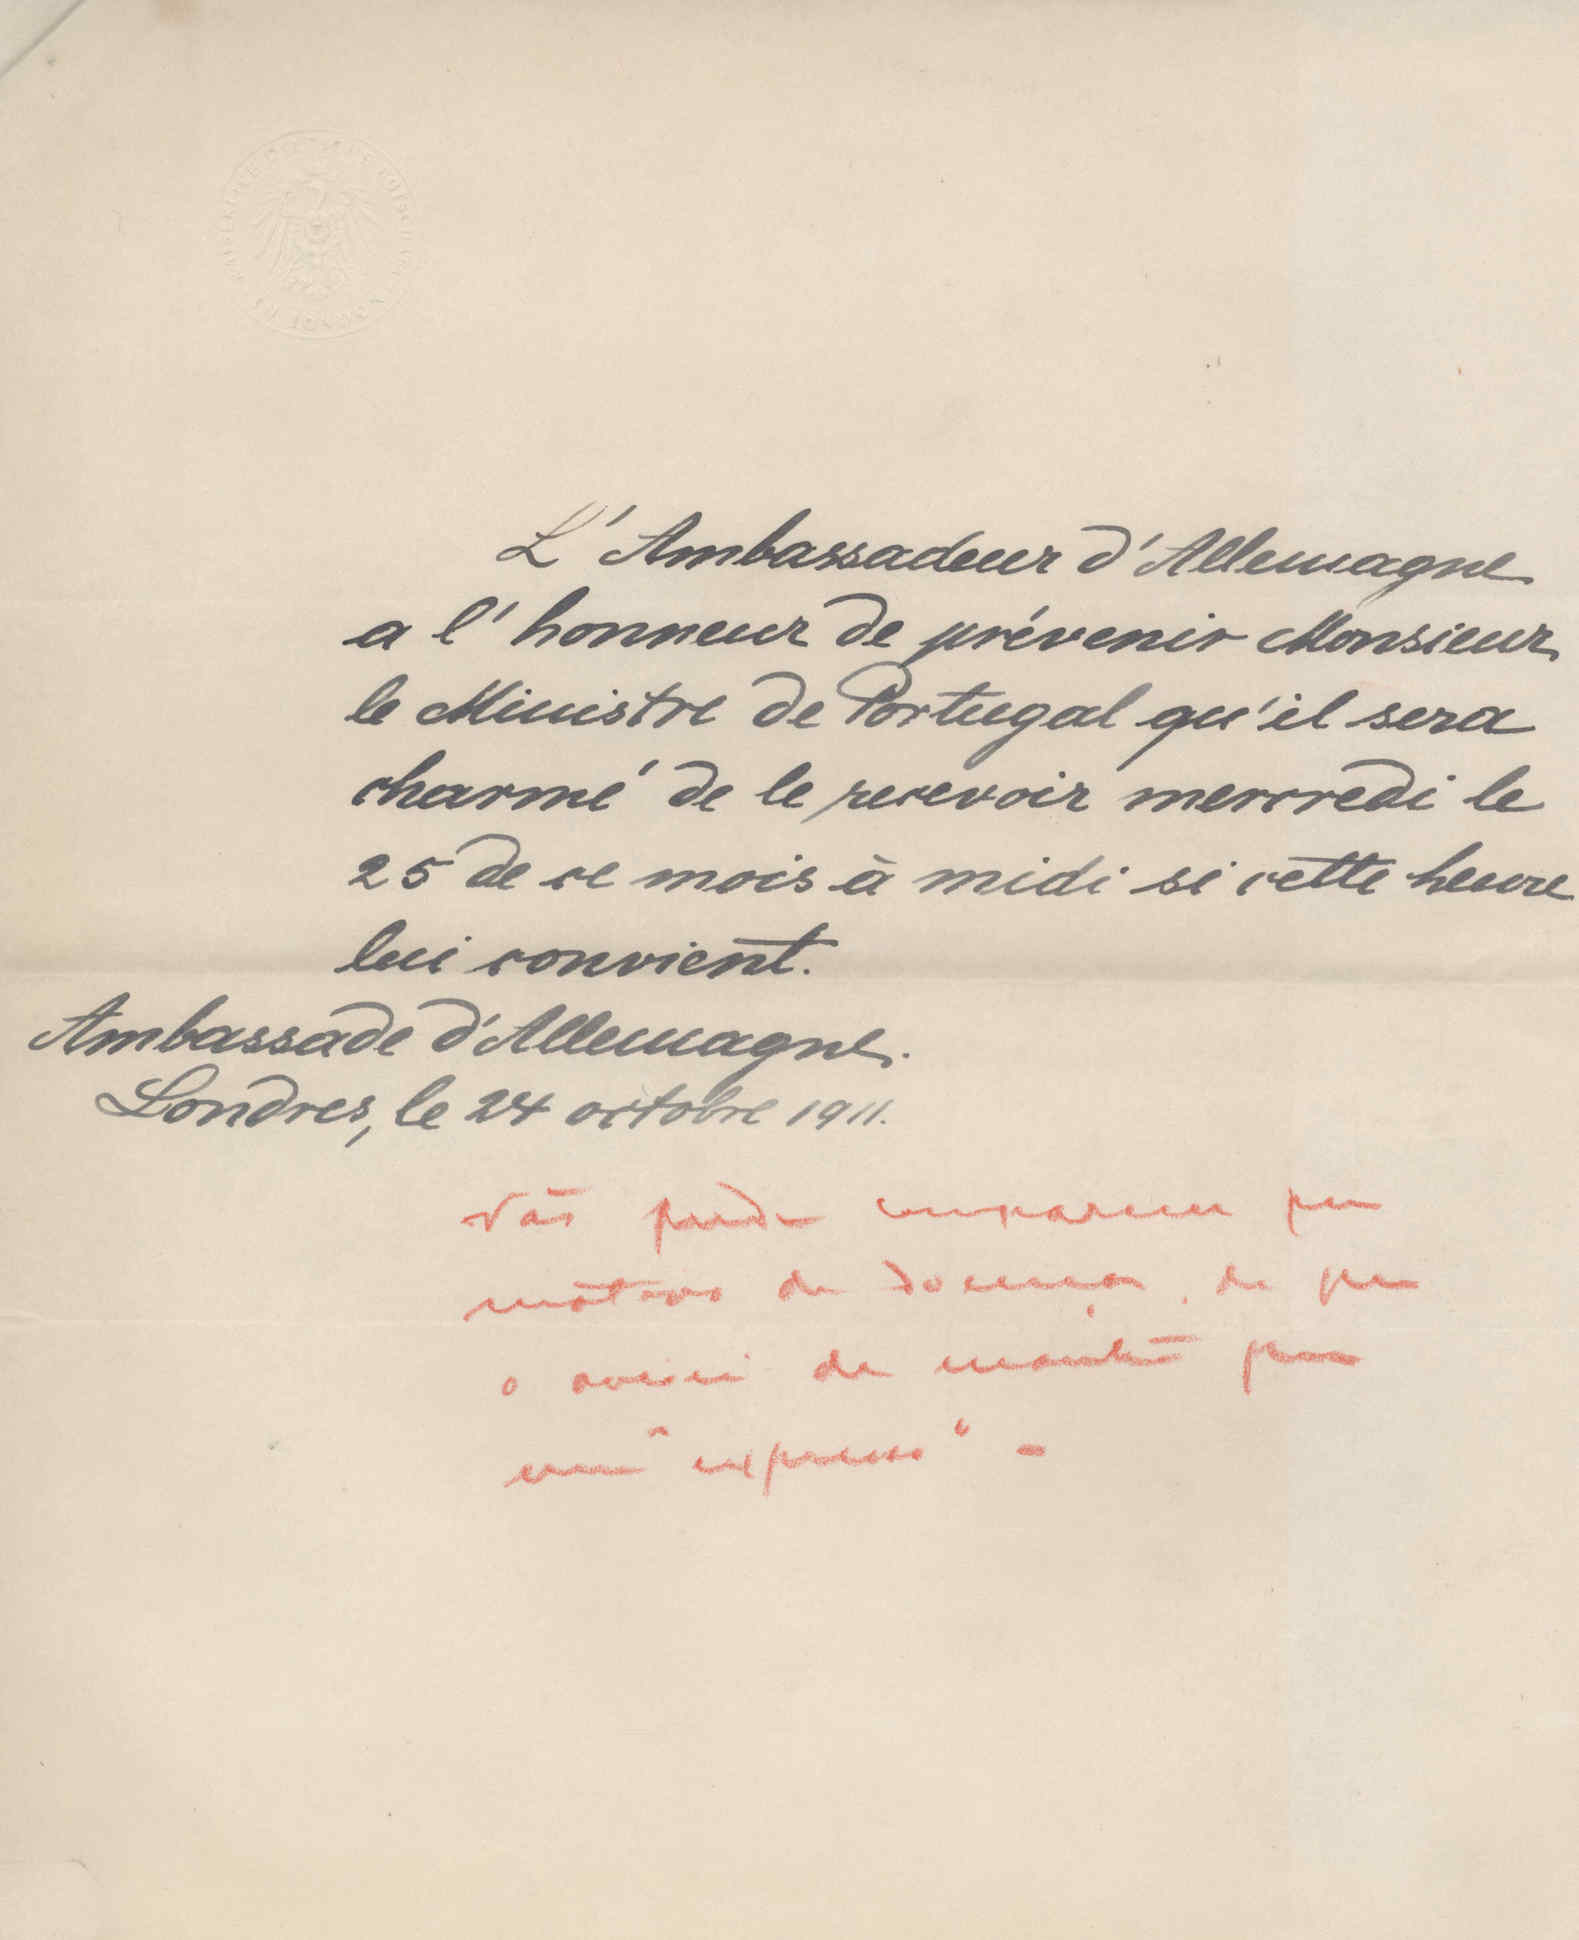 L'Ambassadeur d'Allemagne
a l'honneur de prévenir Monsieur
le Ministre de Portugal qu'il sera
charmé de le recevoir mercredi le
25 de ce mois à midi si cette heure
lui convient.
Ambassade d'Allemagne.
Londres, le 24 octobre 1911.
Não pude comparecer por
motivo de doença, de que
o avisei de manhã por
um "expresso" -